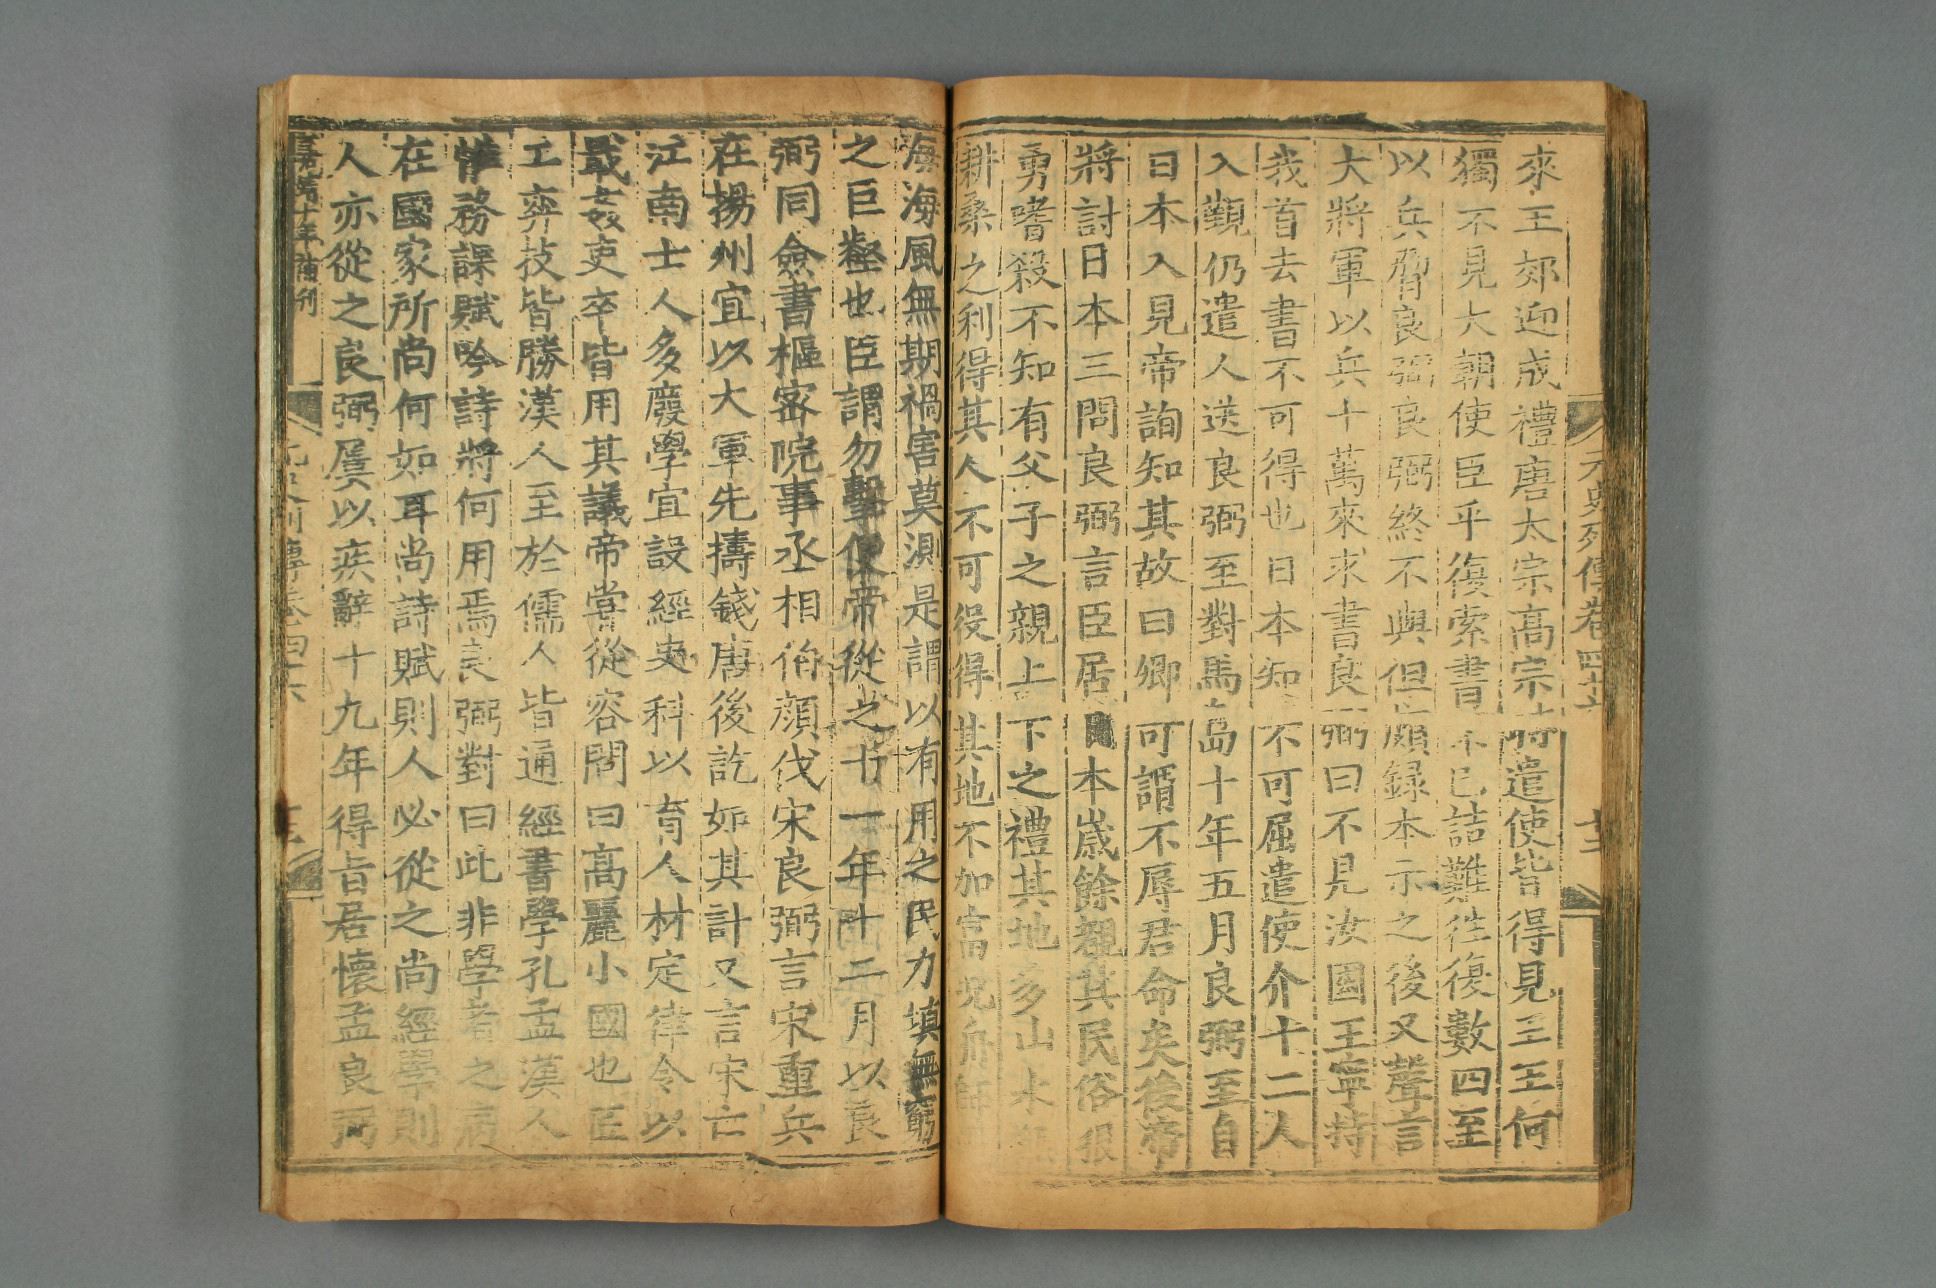 元史列傳卷四十六
十三
來王郊迎成禮唐太宗高宗時遣使皆得見王王何
獨不見大朝使臣乎復索書不已詰難往復數四至
以兵脅良弼良弼終不與但頗錄本示之後又聲言
大將軍以兵十萬來求書良弼曰不見汝國王寧持
我首去書不可得也日本知不可屈遣使介十二人
入覲仍遣人送良弼至對馬島十年五月良弼至自
日本入見帝詢知其故曰卿可謂不辱君命矣後帝
將討日本三問良弼言臣居日本歲餘覩其民俗狠
勇嗜殺不知有父子之親上下之禮其地多山水無
耕桑之利得其人不可役得其地不加富況舟師
海海風無期禍害莫測是謂以有用之民力填無窮
之巨壑也臣謂勿擊便帝從之十一年十二月以良
弼同僉書樞密院事丞相伯顏伐宋良弼言宋重兵
在揚州宜以大軍先擣錢唐後訖如其計又言宋亡
江南士人多廢學宜設經史科以育人材定律令以
戢姦吏卒皆用其議帝嘗從容問曰高麗小國也匠
工弈技皆勝漢人至於儒人皆通經書學孔孟漢人
惟務課賦吟詩將何用焉良弼對曰此非學者之病
在國家所尚何如耳尚詩賦則人必從之尚經學則
人亦從之良弼屢以疾辭十九年得旨居懷孟良弼
嘉靖十年補刊
元史列傳卷四十六
十三